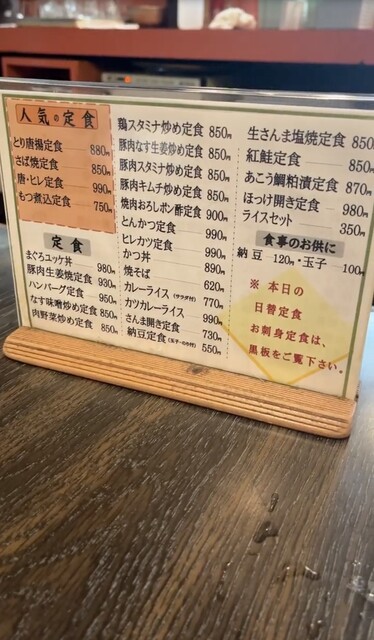 人気の定食
とり唐揚定食 880円
さば焼定食 850円
唐・ヒレ定食 990円
もつ煮込定食 750円
定食
まぐろユッケ丼 980円
豚肉生姜焼定食 930円
ハンバーグ定食 950円
なす味噌炒め定食 850円
肉野菜炒め定食 850円
鶏スタミナ炒め定食 850円
豚肉なす生姜炒め定食 850円
豚肉スタミナ炒め定食 850円
豚肉キムチ炒め定食 850円
焼肉おろしポン酢定食 900円
とんかつ定食 990円
ヒレカツ定食 990円
かつ丼 890円
焼そば 620円
カレーライス(サラダ付) 770円
カツカレーライス 990円
さんま開き定食 730円
納豆定食(玉子・のり付) 550円
生さんま塩焼定食 850
紅鮭定食 850円
あこう鯛粕漬定食 870円
ほっけ開き定食 980円
ライスセット 350円
食事のお供に
納豆 120円・玉子 100円
※ 本日の
日替定食
お刺身定食は、
黒板をご覧下さい。